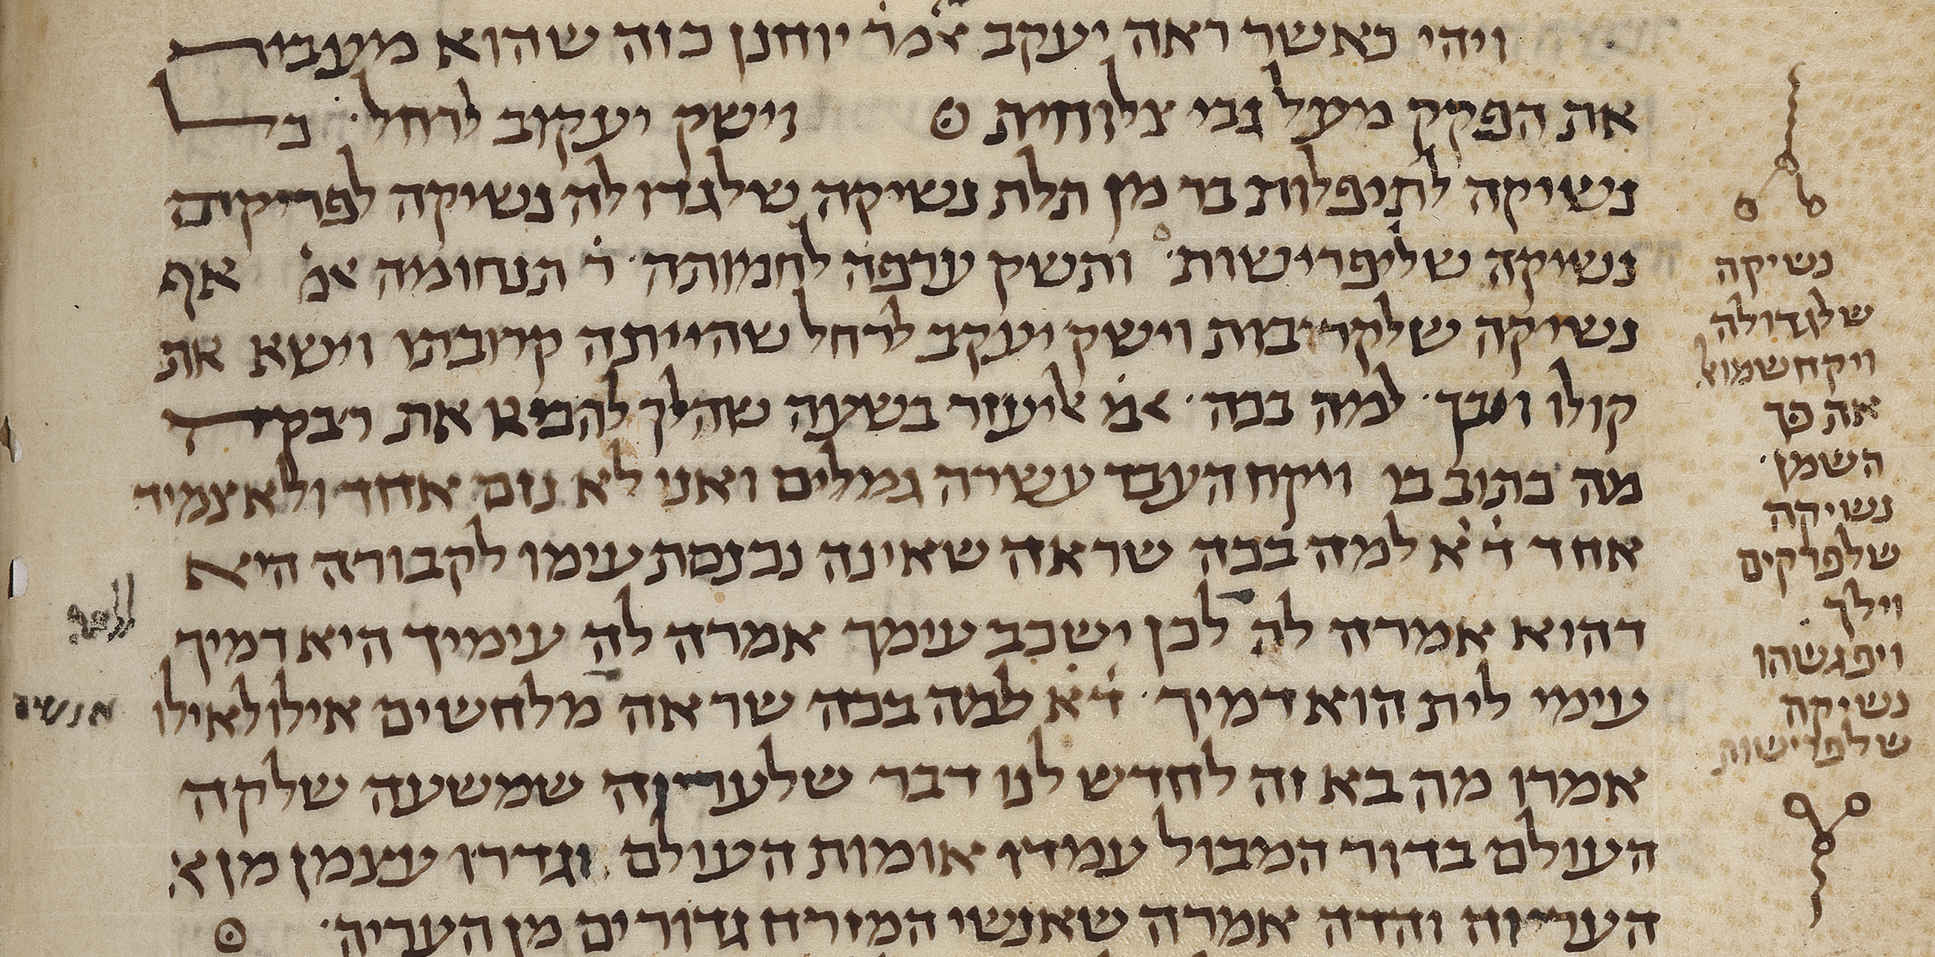 ויהי כאשר ראה יעקב א̇מ̇ר̇ יוחנן כזה שהוא מעביר
את הפקק מעל גבי צלוחית וישק יעקוב לרחל· כל
נשיקה לתיפלות בר מן תלת נשיקה שלגדולה נשיקה לפריקים
נשיקה שלפרישות· ותשק ערפה לחמותה· ר̇ תנחומה אמ̇ אף
נשיקה שלקריבות וישק יעקב לרחל שהייתה קרובתו וישא את
קולו ויבך· למה בכה· אמ̇ ליעזר בשעה שהלך להביא את רבקה
מה כתוב בו ויקח העבד עשרה גמלים ואני לא נזם אחד ולא צמיד
אחד ד̇א̇ למה בכה שראה שאינה נכנסת עימו לקבורה היא
דהוא אמרה לה לכן ישכב עימך אמרה לה עימיך היא דמיך
עימי לית הוא דמיך· ד̇א̇ למה בכה שראה מלחשים אילו לאילו
אמרו מה בא זה לחדש לנו דבר שלערווה שמשעה שלקה
העולם בדור המבול עמדו אומות העולם וגדרו עצמן מן
הערווה והדה אמרה שאנשי המזרח גדורים מן הערוה·
נשיקה
שלגדולה
ויקח שמואל
את פך
השמן·
נשיקה
שלפרקים
וילך
ויפגשהו
נשיקה
שלפרישות
אנשים